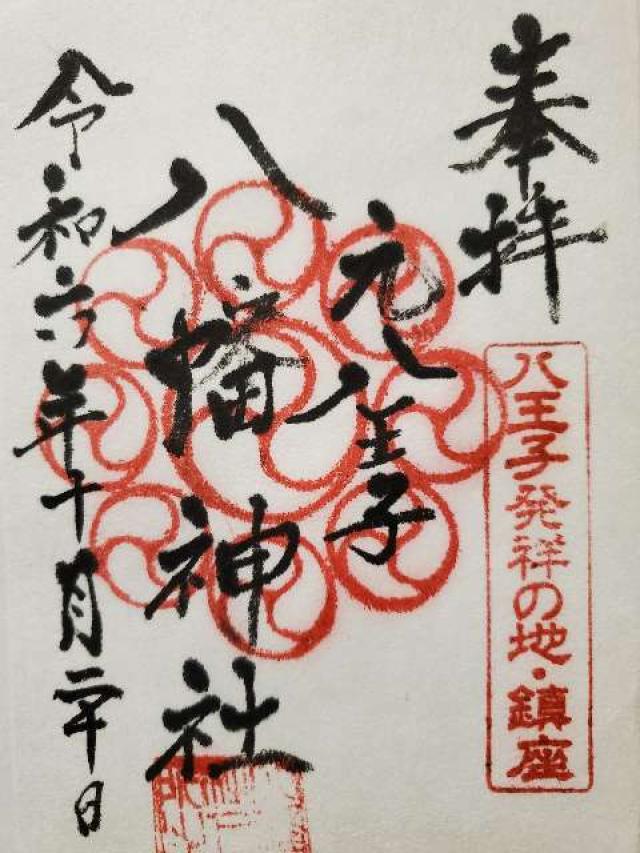 奉拝
八王子発祥の地・鎮座
元八王子
八幡神社
令和六年十月二十日